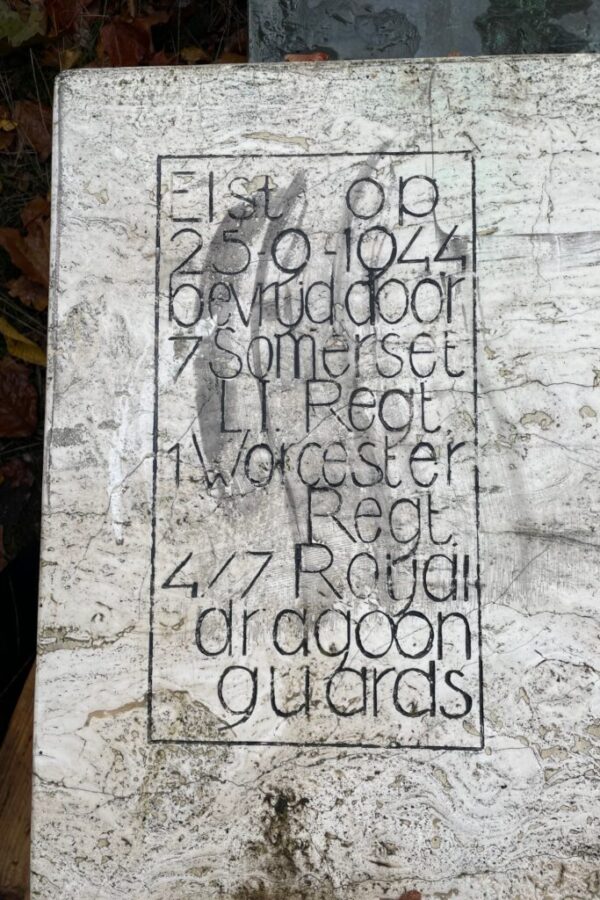 Elst op
25-9-1944
bevrijd door
7 Somerset
L.I. Regt.
1 Worcester
Regt.
4./7 Royal
dragoon
guards